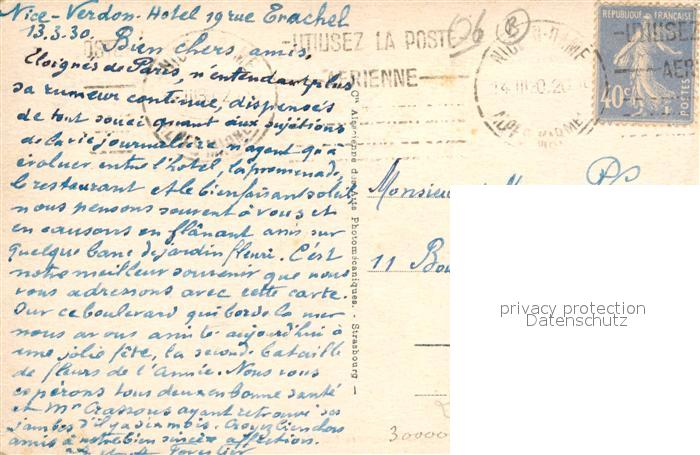 Nice-Verdon-Hotel 19 rue Trachel
13.3.30.
Bien chers amis,
Eloignés de Paris, n'entendant plus
sa rumeur continue, dispensés
de tout souci quant aux sujétions
de la vie journalière n'ayant qu'à
évoluer entre l'hotel, la promenade,
le restaurant et le bienfaisant soleil
nous pensons souvent à vous et
en causons en flânant assis sur
quelque banc de jardin fleuri. C'est
notre meilleur souvenir que nous
vous adressons avec cette carte.
Sur ce boulevard qui borde la mer
nous avons assisté aujourd'hui à
une jolie fête, la seconde bataille
de fleurs de l'Année. Nous vous
espérons tous deux en bonne santé
et Mr Crassous ayant retrouvé ses
jambes d'il y a six mois. Croyez bien chers
amis à notre bien sincère affection.
Forestier
UTILISEZ LA POSTE
AERIENNE
REPUBLIQUE FRANÇAISE
40c
POSTES
Cie Alsacienne des Arts Photomécaniques. - Strasbourg
Monsieur
11 Bou
privacy protection
Datenschutz